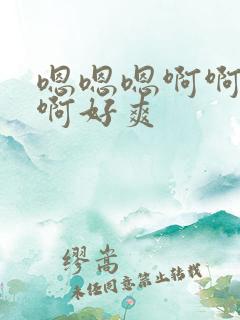 嗯嗯嗯啊啊
啊好爽
缪嵩
未经同意禁止转载